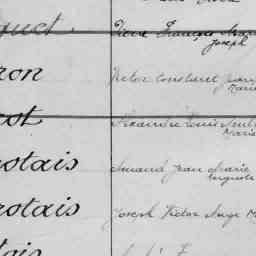 quet Pierre François Marie
Joseph
ron Victor Constant Jean
Marie
rot Alexandre Louis
Marie
otais Armand Jean Marie
Auguste
rotais Joseph Victor Ange M